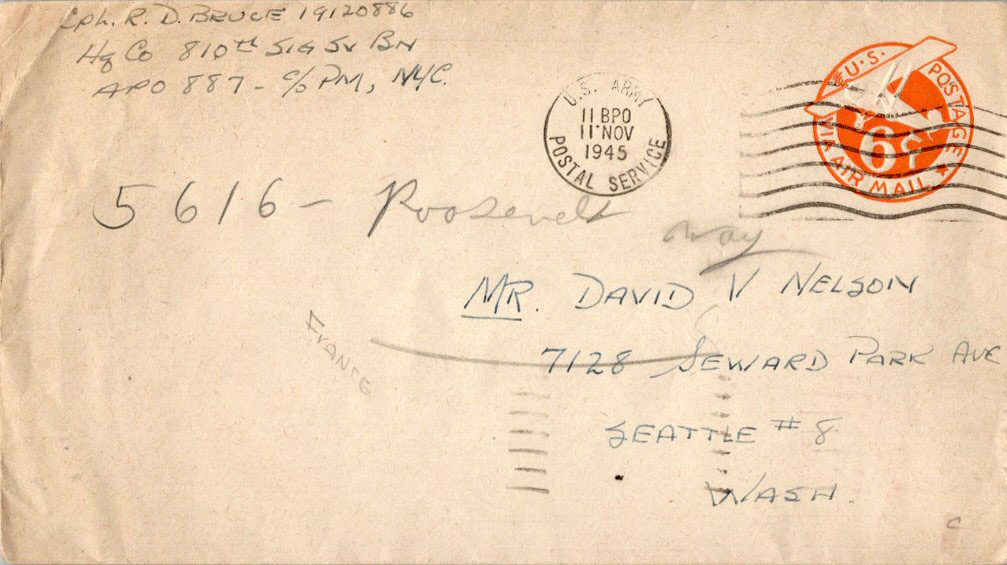 Cpl. R. D. BRUCE 19120886
Hq Co 810th SIG SV BN
APO 887 - c/o PM, NYC.
U.S. ARMY
11 BPO
11 NOV
1945
POSTAL SERVICE
U.S. POSTAGE
6¢
VIA AIR MAIL
5616 - Roosevelt Way
MR. DAVID V NELSON
7128 SEWARD PARK AVE
FRANCE
SEATTLE # 8
WASH.
C